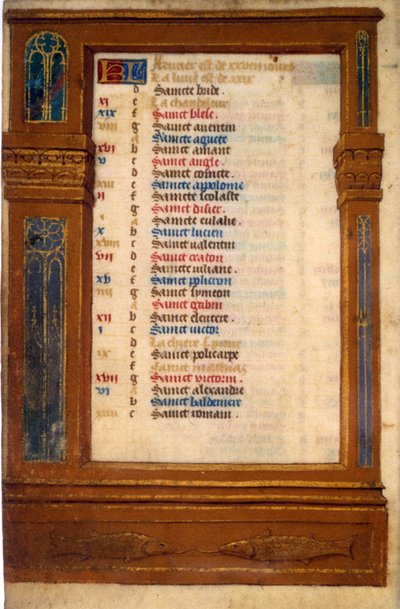 KL Feurier est de xxviii iours
La lune est de xxix
d Saincte bride.
xi e La chandeleur
xix f Sainct blese.
viii g Sainct auentin
a Saincte aguete
xvi b Sainct amant
v c Sainct
d Sainct
xiii e Saincte appolonie
ii f Saincte scolaste
g Sainct disier.
a Saincte eulalie.
x b Sainct lucien
xviii c Sainct valentin
vii d Sainct craton
e Saincte iuliane.
xv f Sainct policron
iiii g Sainct symeon
a Sainct
xii b Sainct eleutere.
i c Sainct victor
d La chiere
ix e Sainct policarpe
f Sainct mathias
xvii g Sainct victorin.
vi a Sainct alexandre
b Sainct
xiiii c Sainct romain.